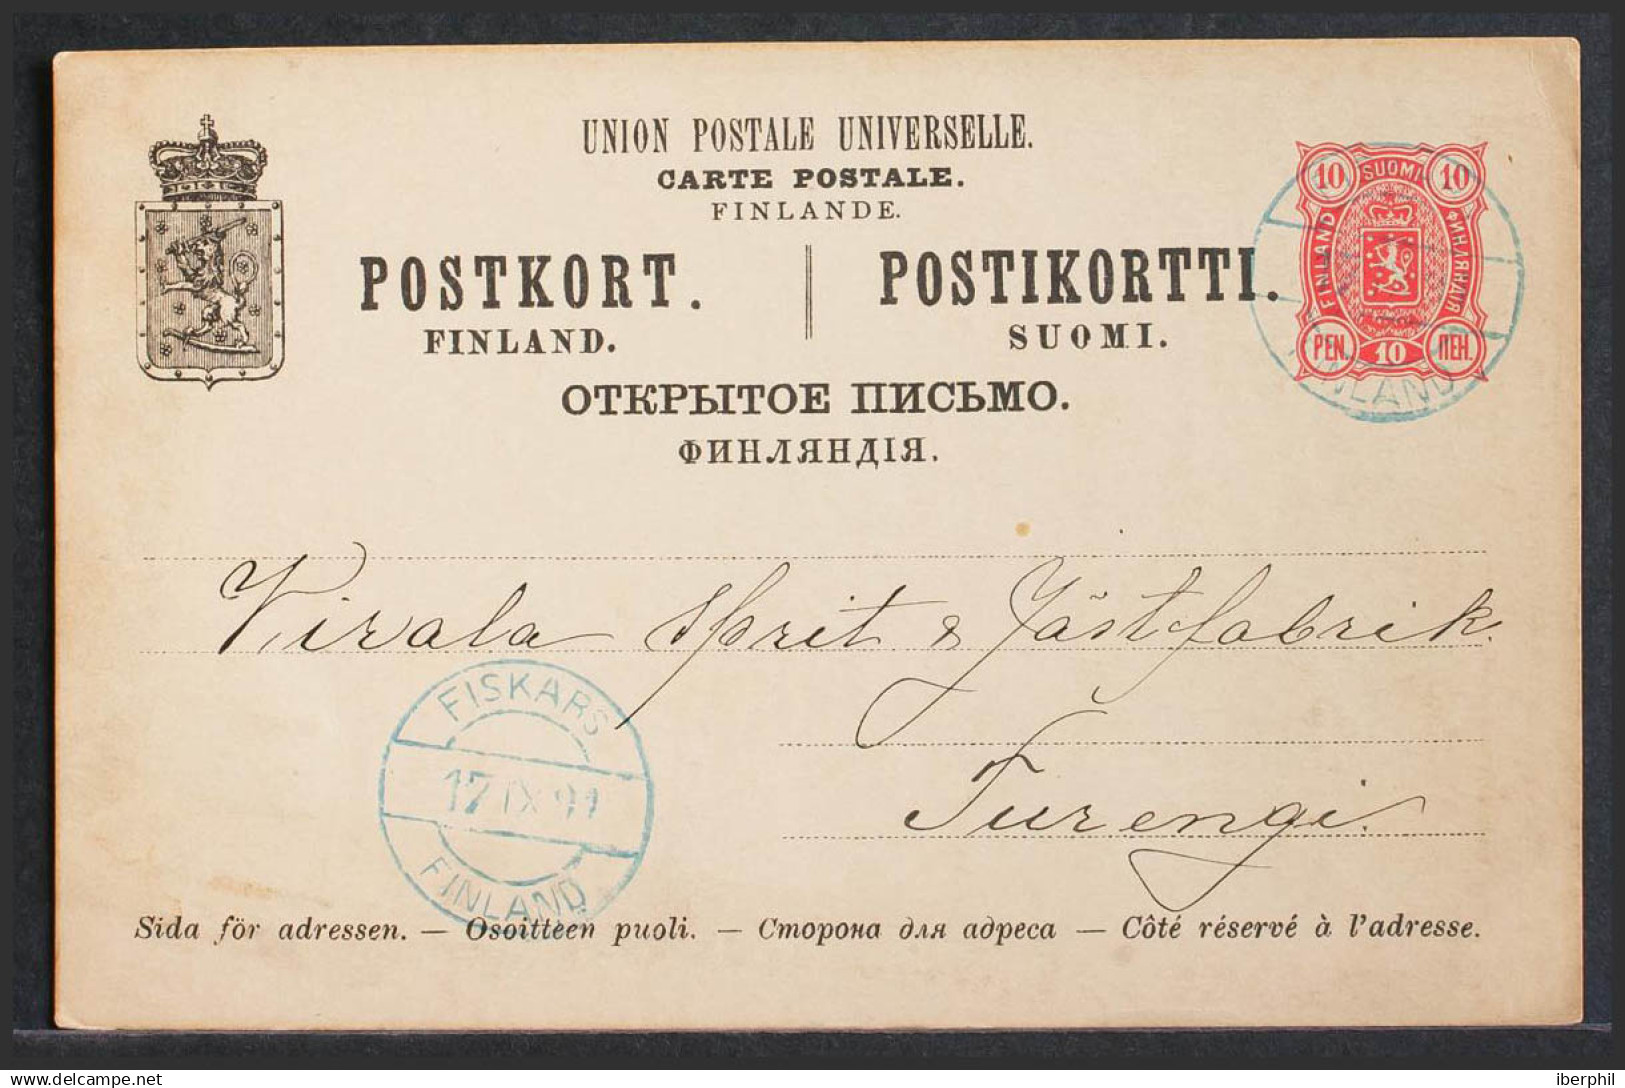 UNION POSTALE UNIVERSELLE.
CARTE POSTALE.
FINLANDE.
POSTKORT.
FINLAND.
POSTIKORTTI.
SUOMI.
ОТКРЫТОЕ ПИСЬМО.
ФИНЛЯНДІЯ.
10 SUOMI 10
FINLAND
ФИНЛЯНДІЯ
PEN. 10 ПЕН.
FINLAND
Virala Sprit & Jästfabrik.
Turengi.
FISKARS
17 IX 91
FINLAND.
Sida för adressen. — Osoitteen puoli. — Сторона для адреса — Côté réservé à l'adresse.
iberphil